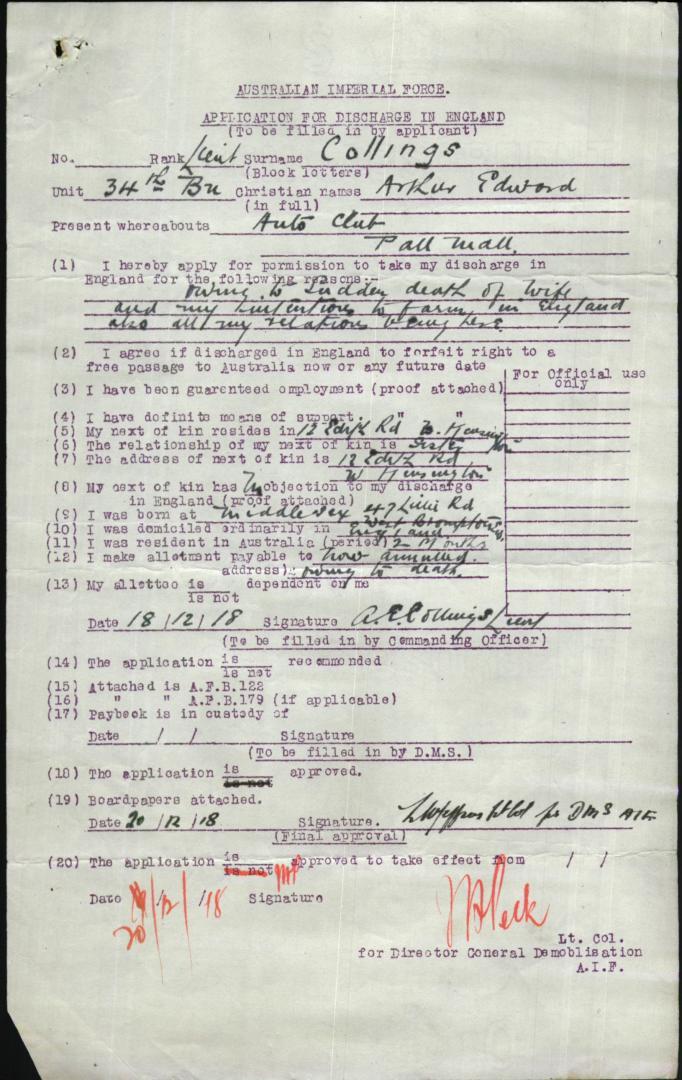 AUSTRALIAN IMPERIAL FORCE.
APPLICATION FOR DISCHARGE IN ENGLAND
(To be filled in by applicant)
No. Rank Lieut Surname Collings
(Block letters)
Unit 34th Bn Christian names Arthur Edward
(in full)
Present whereabouts Auto Club
Pall Mall.
(1) I hereby apply for permission to take my discharge in
England for the following reasons:-
owing to sudden death of wife
and my intentions to farm in England
also all my relations being here.
(2) I agree if discharged in England to forfeit right to a
free passage to Australia now or any future date
For Official use
only
(3) I have been guaranteed employment (proof attached)
(4) I have definite means of support. " "
(5) My next of kin resides in 12 Edith Rd W. Kensington
(6) The relationship of my next of kin is Sister
(7) The address of next of kin is 12 Edith Rd
W Kensington
(8) My next of kin has no objection to my discharge
in England (proof attached)
(9) I was born at Middlesex 47 Lillie Rd
West Brompton
(10) I was domiciled ordinarily in England
(11) I was resident in Australia (period) 2 Months
(12) I make allotment payable to now annulled.
address) owing to death.
(13) My allottee is dependent on me
is not
Date 18/12/18 Signature A.E. Collings Lieut
(To be filled in by Commanding Officer)
(14) The application is recommended
is not
(15) Attached is A.F.B.122
(16) " " A.F.B.179 (if applicable)
(17) Paybook is in custody of
Date / / Signature
(To be filled in by D.M.S.)
(18) The application is approved.
is not
(19) Boardpapers attached.
Date 20/12/18 Signature. for DMS AIF
(Final approval)
(20) The application is approved to take effect from / /
is not
Date 20/12/18 Signature
Lt. Col.
for Director General Demobilisation
A.I.F.